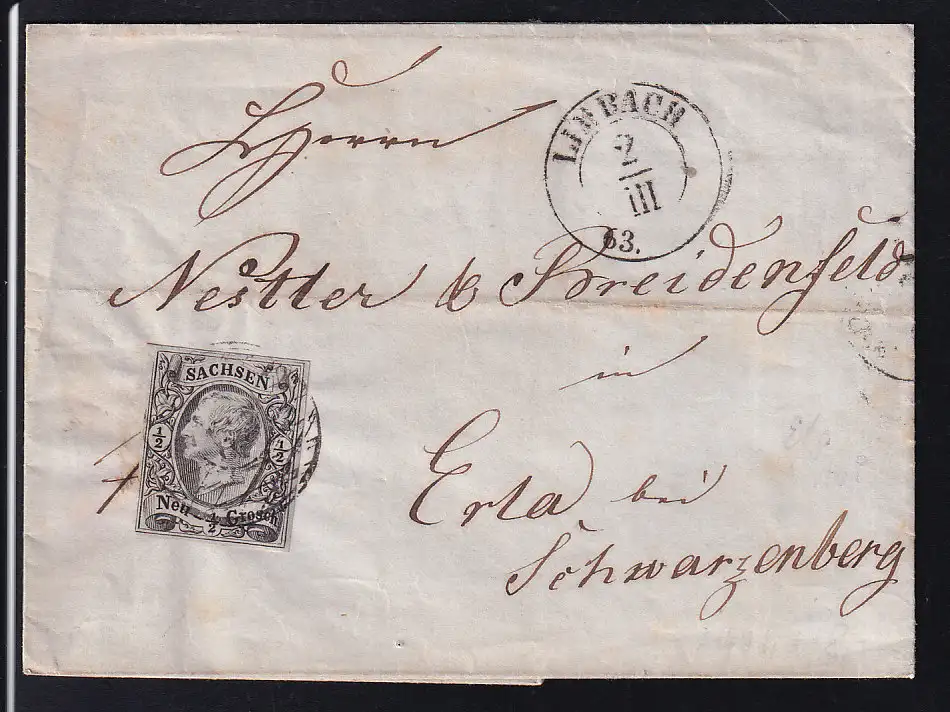 LIMBACH
2
III
63.
Herrn
Nestler & Breidenfeld
in
Erla bei
Schwarzenberg
SACHSEN
½ ½
Neu - ½ Grosch